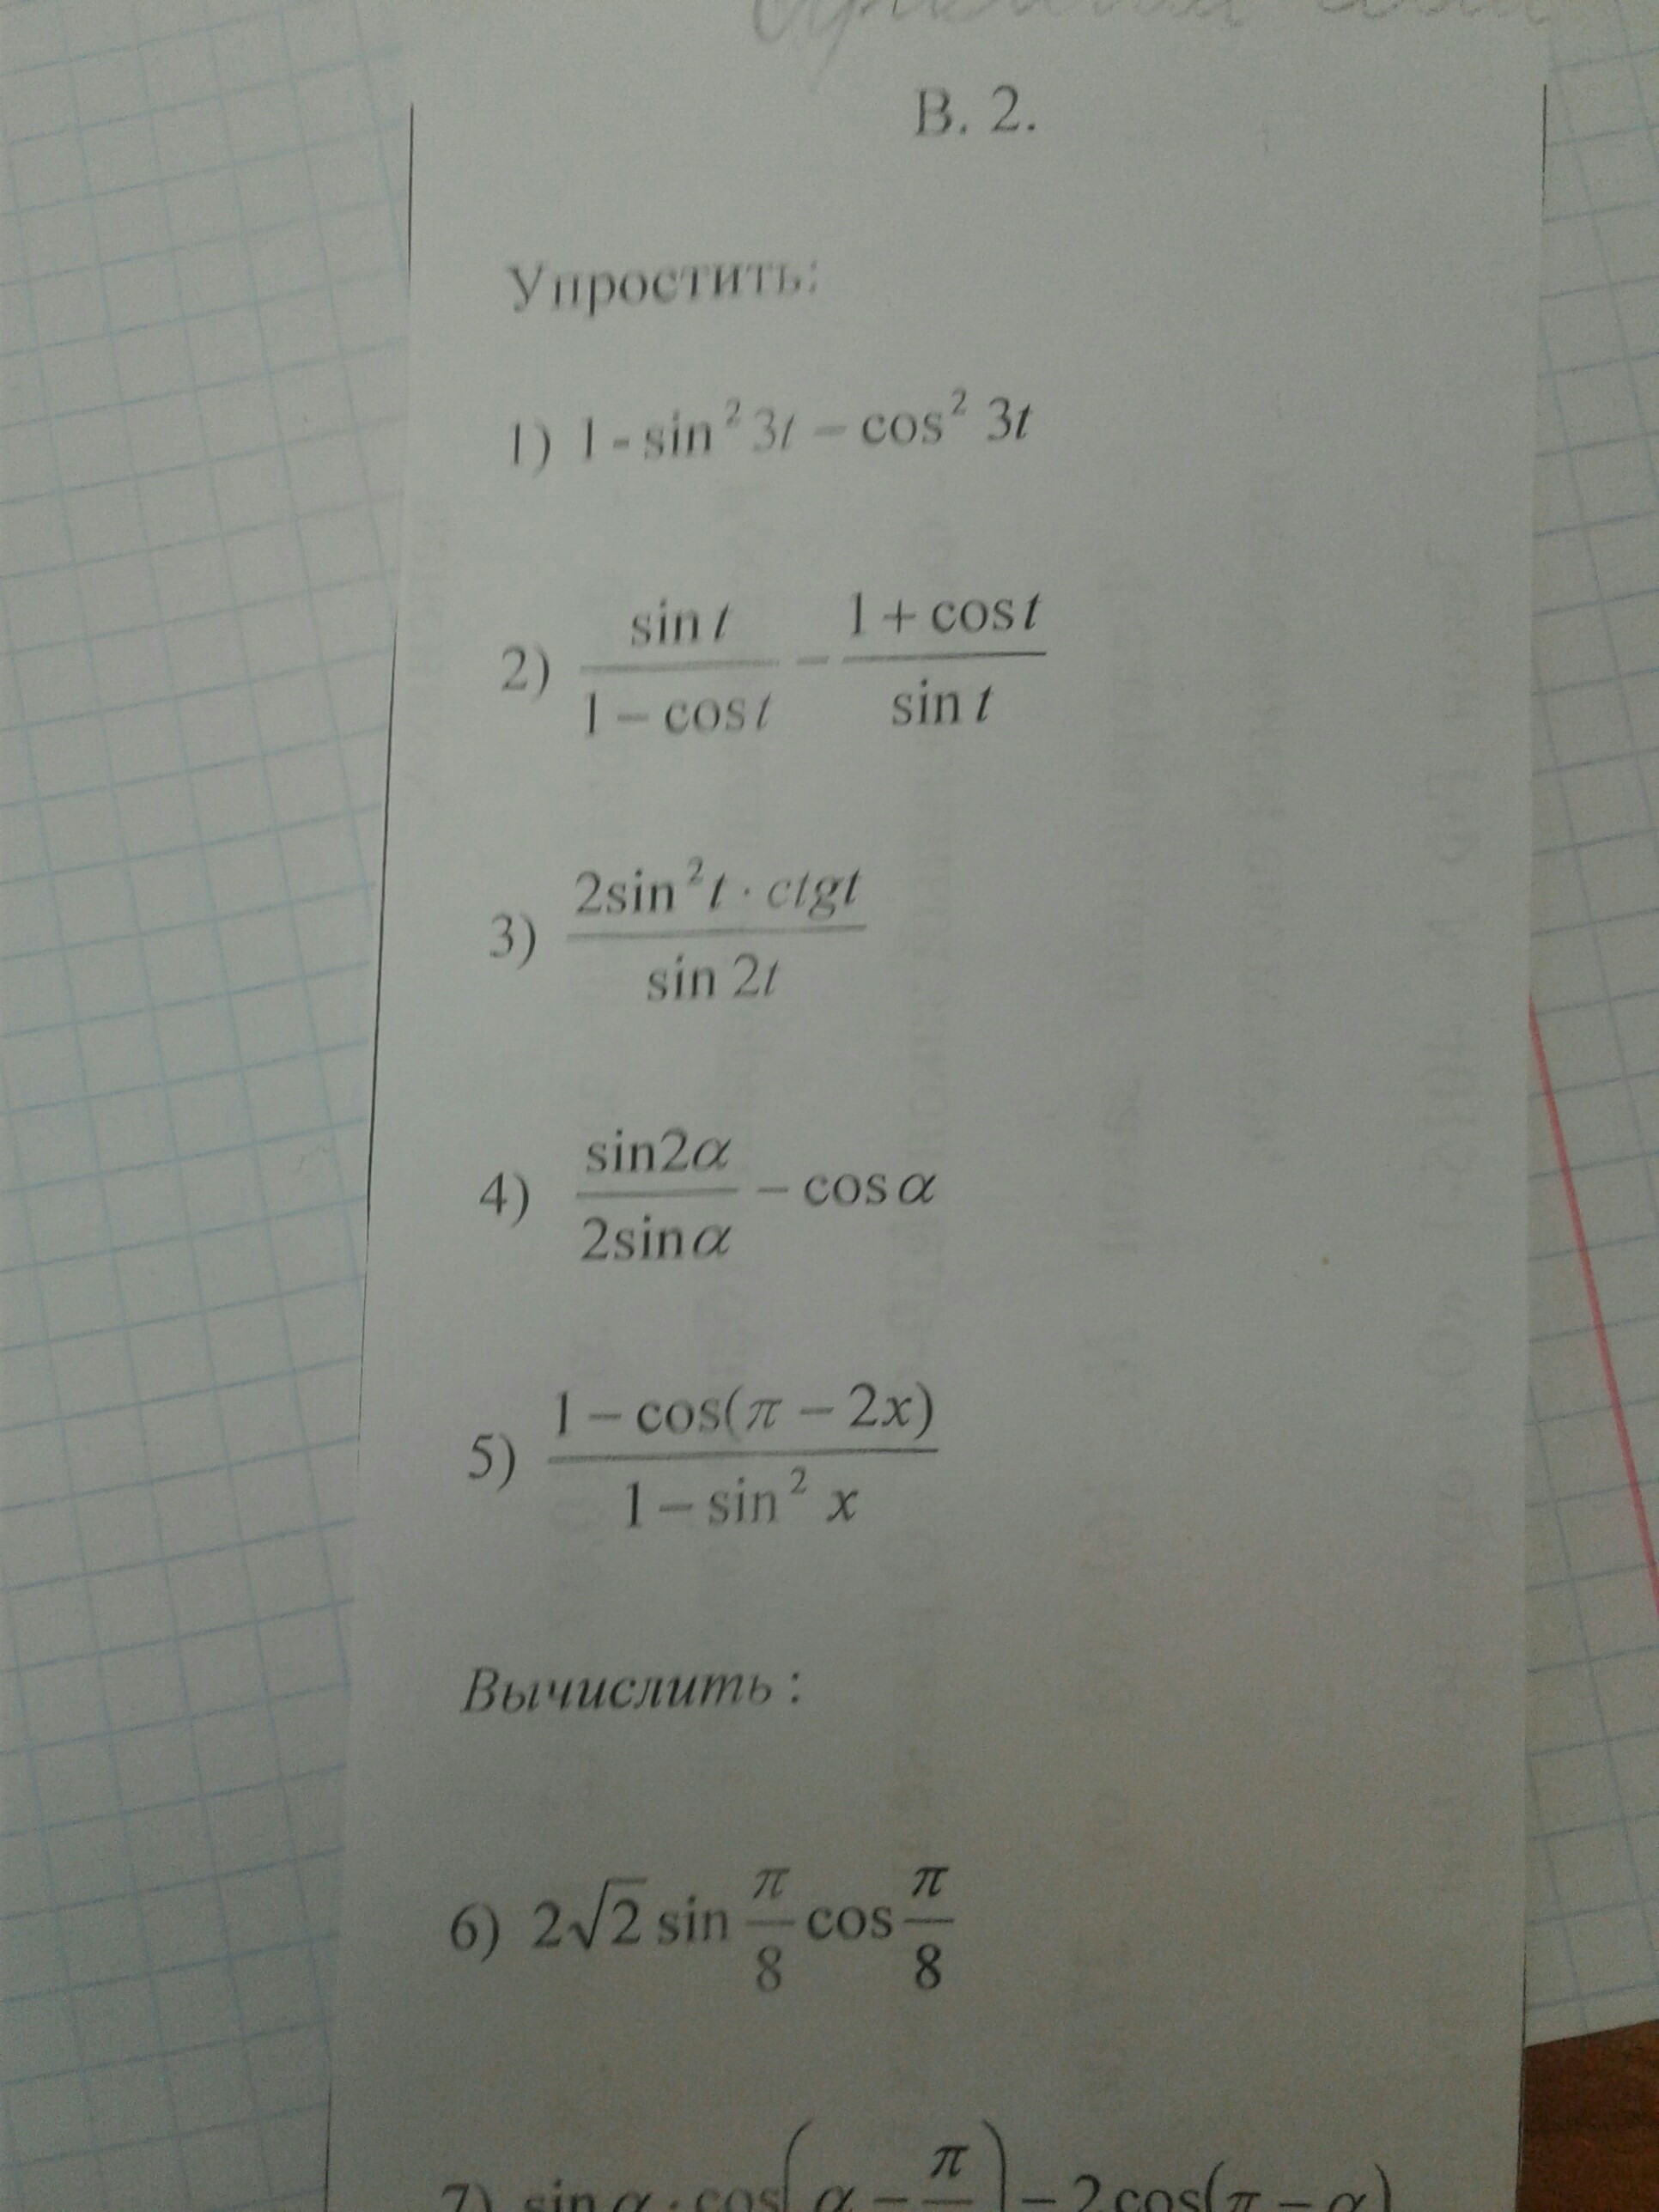 В. 2.
Упростить:
1) 1 - sin² 3t – cos² 3t
2) \frac{sin t}{1 – cos t} – \frac{1 + cos t}{sin t}
3) \frac{2sin² t · ctgt}{sin 2t}
4) \frac{sin2α}{2sinα} – cos α
5) \frac{1 – cos(π – 2x)}{1 – sin² x}
Вычислить :
6) 2√2 sin \frac{π}{8} cos \frac{π}{8}
7) sin α · cos(α – π) – 2 cos(π – α)